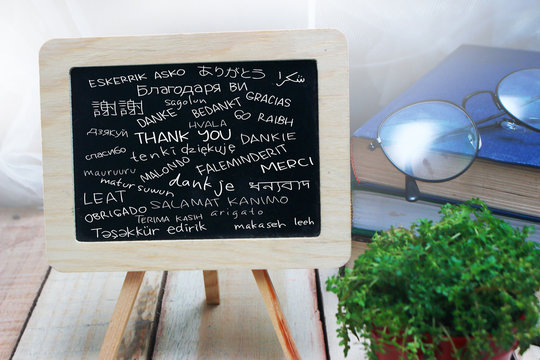 ESKERRIK ASKO ありがとう شكرا
Благодаря ви
謝謝 sagolun GRACIAS
DANKE BEDANKT
HVALA GO RAIBH
Дзякуй THANK YOU DANKIE
спасибо tenki dziękuję
MALONDO FALEMINDERIT MERCI
mauruuru
matur suwun dankje ধন্যবাদ
LEAT SALAMAT KANIMO
OBRIGADO TERIMA KASIH arigato
Təşəkkür edirik makaseh leeh